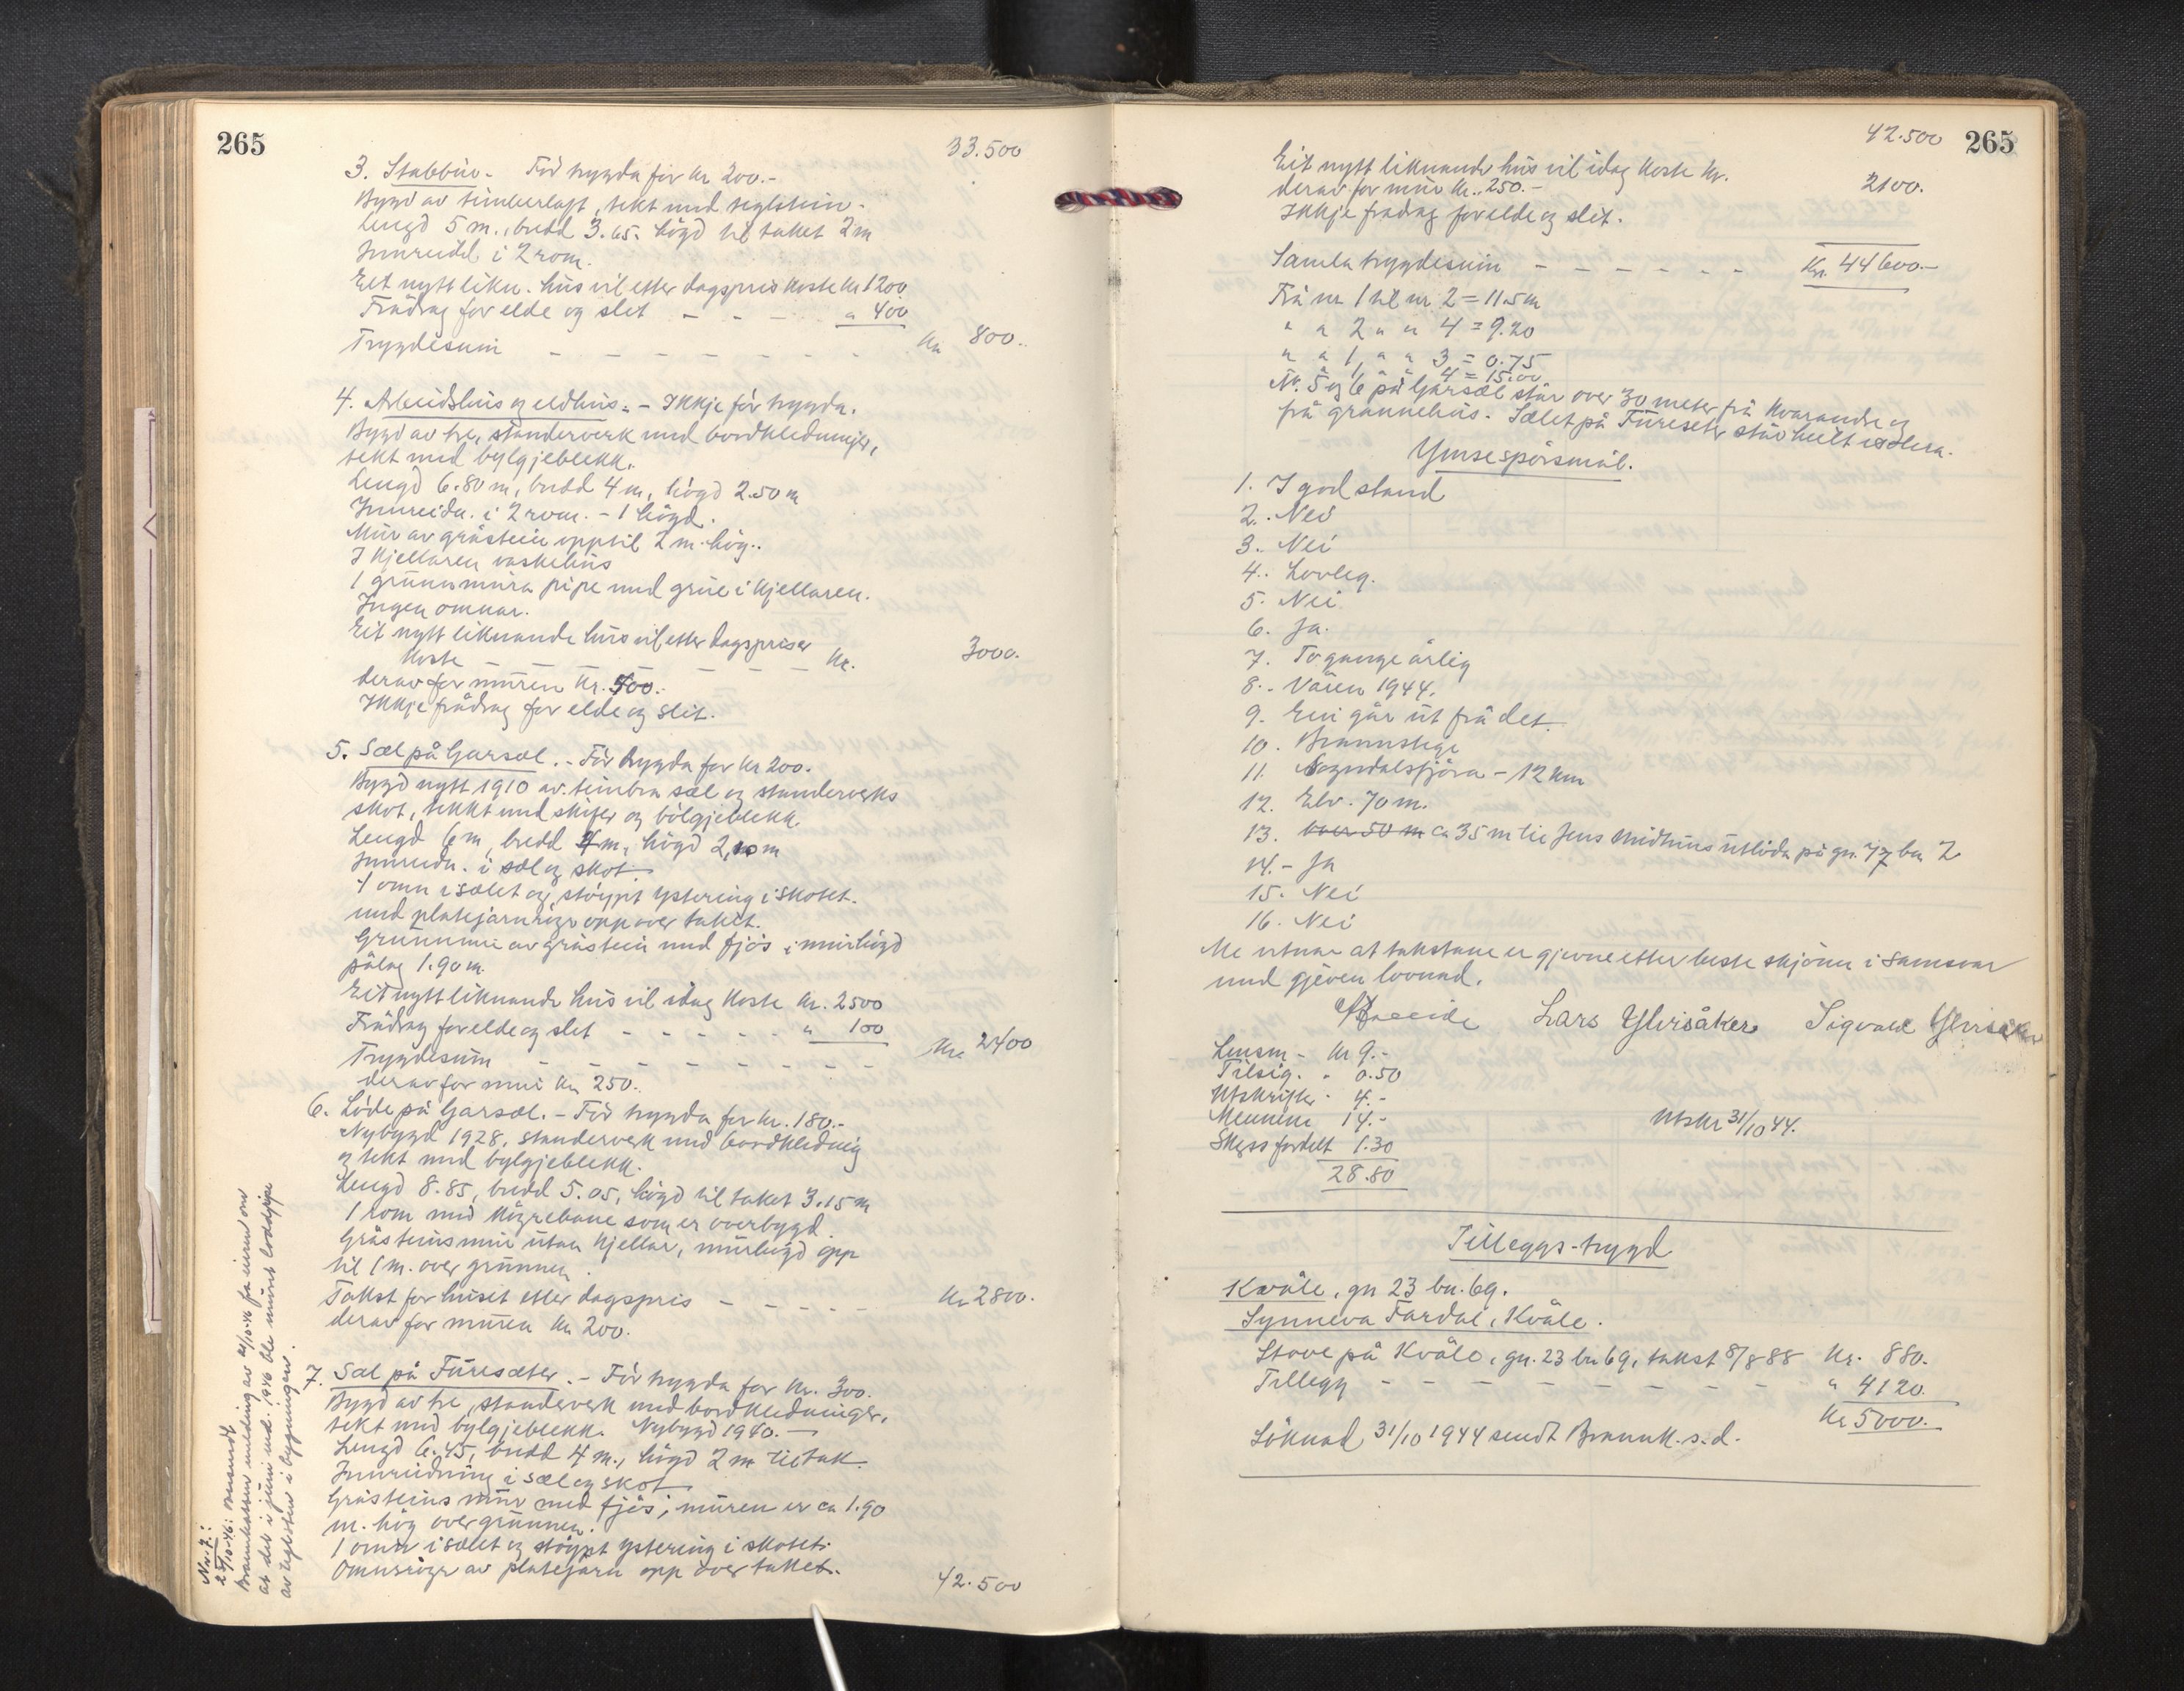 265
33.500
3. Stabbur. - Før trygda for kr 200.-
Bygd av timberlaft, tekt med teglstein.
Lengd 5 m., bredd 3.65. høgd til taket 2 m
Innreidd i 2 rom.
Eit nytt likn. hus vil etter dagspris koste kr 1200
Frådrag for elde og slit - - - " 400
Trygdesum - - - - - - - kr 800.
4. Arbeidshus og eldhus. - Ikkje før trygda.
Bygd av tre, standerverk med bordkledningr,
tekt med bylgjeblekk.
Lengd 6.80 m, bredd 4 m, høgd 2.50 m
Innreidn. i 2 rom. - 1 høgd.
Mur av gråstein opptil 2 m. høg.
I kjellaren vaskehus
1 grunnmura pipe med grue i kjellaren.
Ingen omnar.
Eit nytt liknande hus vil etter dagspriser
koste - - - - - - - kr. 3000.
derav for muren kr. 500.-
Ikkje frådrag for elde og slit.
5. Sæl på Garsæl. - Før trygda for kr 200.
Bygd nytt 1910 av timbra sæl og standerverks
skot, tekkt med skifer og bølgjeblekk
Lengd 6 m, bredd 4 m, høgd 2,10 m
Innreidn. i sæl og skot.
1 omn i sælet og støypt ystering i skotet.
med platejarnsrøyr opp over taket.
Grunnmur av gråstein med fjøs i murhøgd
pålag 1.90 m.
Eit nytt liknande hus vil idag koste kr. 2500
Frådrag for elde og slit - - - - - " 100
Trygdesum - - - - - - - - kr. 2400
derav for mur kr 250.
6. Løde på Garsæl. - Før trygda for kr. 180.-
Nybygd 1928, standerverk med bordkledning
og tekt med bylgjeblekk.
Lengd 8.85, bredd 5.05, høgd til taket 3.15 m
1 rom med køyrebane som er overbygd.
Gråsteinsmur utan kjellar, murhøgd opp
til 1 m. over grunnen.
Takst for huset etter dagspris - - - - - kr 2800.
derav for muren kr 200.
7. Sæl på Furesæter. - Før trygda for kr. 300.
Bygd av tre, standerverk med bordkledninger,
tekt med bylgjeblekk. Nybygd 1940. -
Lengd 6.45, bredd 4 m., høgd 2 m til tak.
Innreidning i sæl og skot
Gråsteins mur med fjøs; muren er ca 1.90
m. høg over grunnen.
1 omn i sælet og støypt ystering i skotet.
Omnsrøyr av platejarn opp over taket.
42.500
Nr. 7.:
25/10-46: Avsendt
Brannkassen melding av 24/10-46 frå eieren om
at det i juni md. 1946 ble murt loddpipe
av teglstein i bygningen.
42.500
265
Eit nytt liknande hus vil idag koste kr. 2100.
derav for mur kr. 250.-
Ikkje frådrag for elde og slit.
Samla trygdesum - - - - - - Kr. 44600.-
Frå nr. 1 til nr. 2 = 11.5 m
" " 2 " " 4 = 9.20
" " 1, " " 3 = 0.75
" " 4 = 15.00
Nr. 5 og 6 på Garsæl står over 30 meter frå kvarandre og
frå grannehus. Sælet på Fureseter står heilt isolera.
Ymse spørsmål.
1. I god stand
2. Nei
3. Nei
4. Lovleg.
5. Nei
6. Ja.
7. To gange årlig
8. - Våren 1944.
9. Ein går ut frå det.
10. Brannstige
11. Sogndalsfjøra - 12 km
12. Elv. 70 m.
13. over 50 m ca 35 m til Jens Midthus utløda på gn. 77 bn 2
14. - Ja
15. Nei
16. Nei
Me vitnar at takstane er gjevne etter beste skjønn i samsvar
med gjeven lovnad.
Lars Ylvisåker Sigvald Ylvisaker
Lensm - kr 9.-
Tilsig. " 0.50
Utskrifter " 4.-
Mennene 14.-
Skyss fordelt 1.30
28.80
Utskr 31/10 44.
Tilleggs-trygd
Kvåle, gn 23 bn. 69.
Synneva Fardal, Kvåle.
Stove på Kvåle, gn. 23 bn 69, takst 8/8 88 Kr. 880.
Tillegg - - - - - - - - - " 4120.
Kr 5000.-
Søknad 31/10 1944 sendt Brannk. s.d.